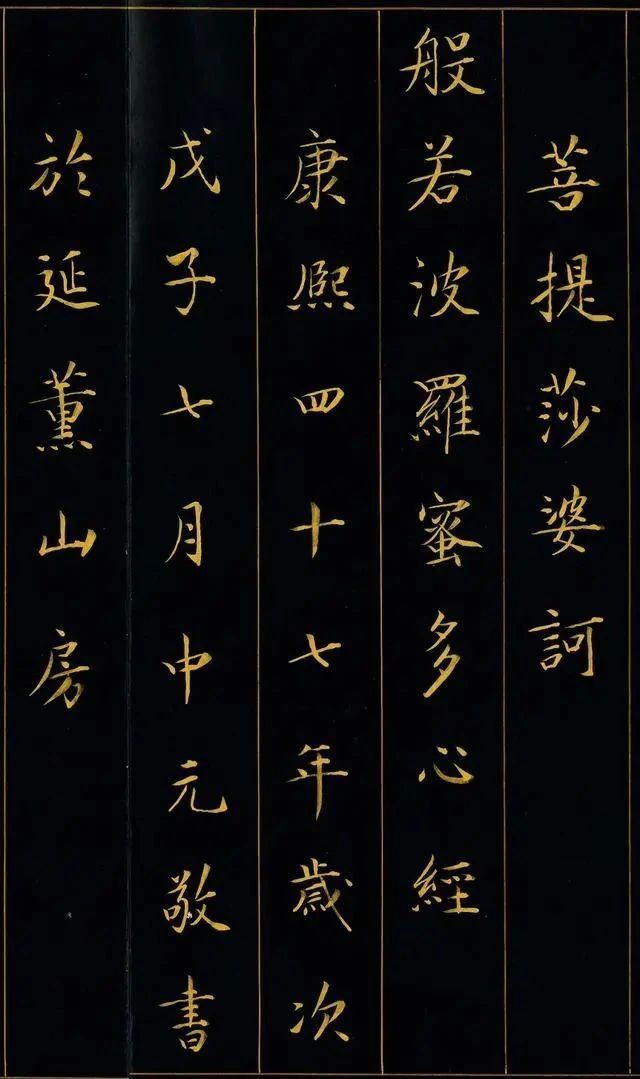 菩提莎婆訶
般若波羅蜜多心經
康熙四十七年歲次
戊子七月中元敬書
於延薰山房